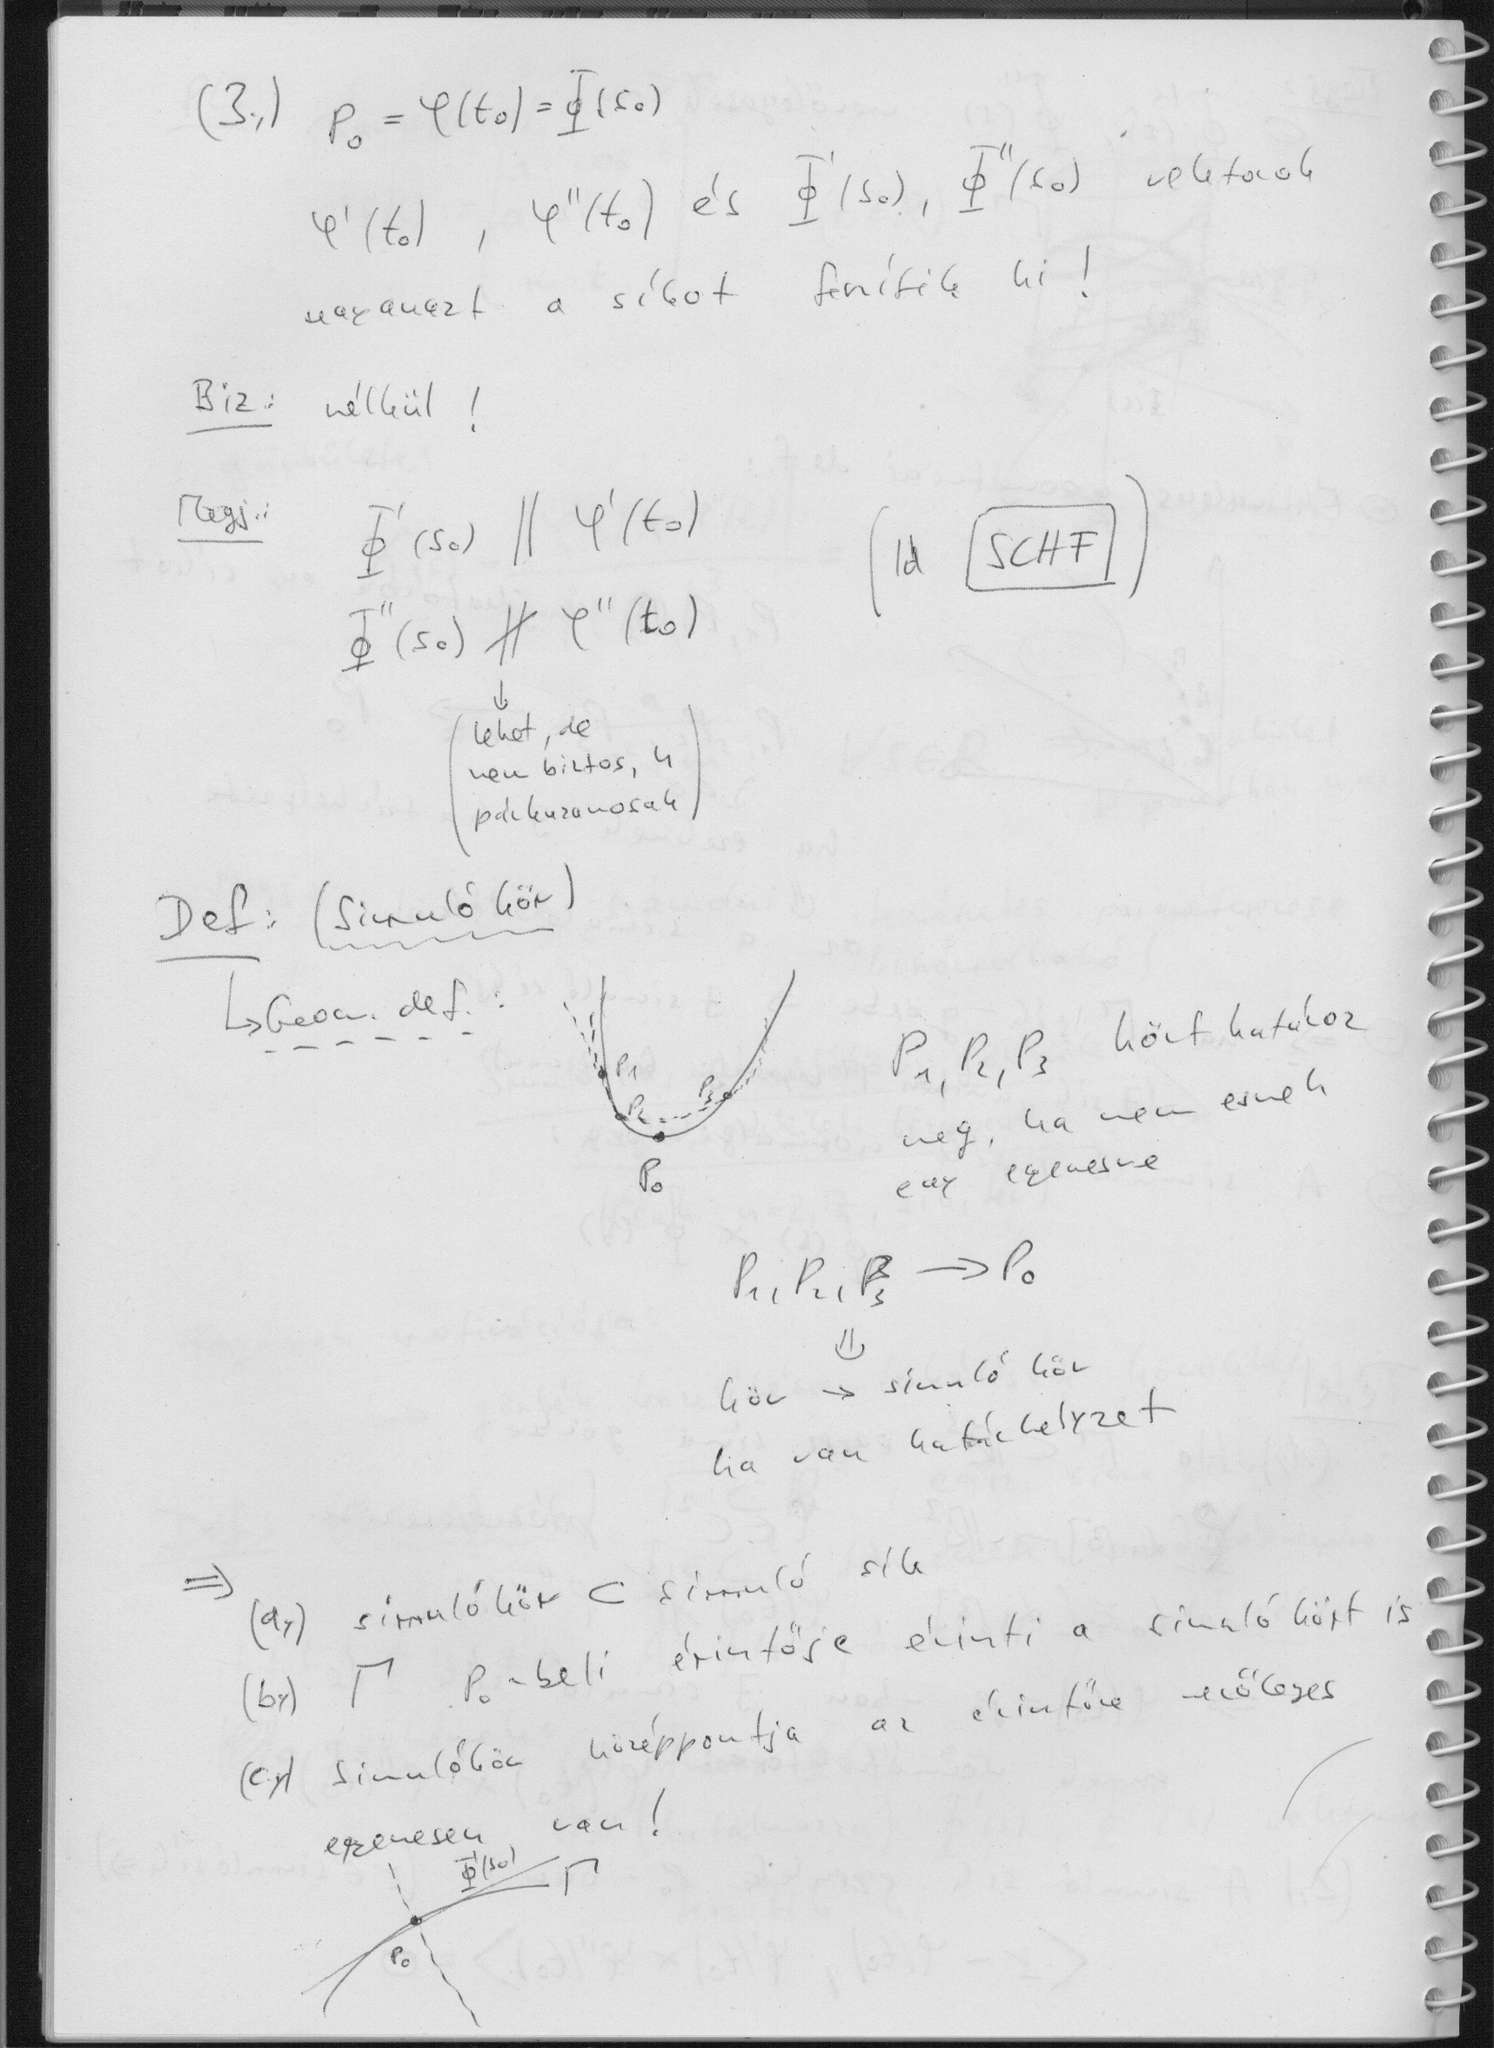 (3.,) P₀ = φ(t₀) = Φ(s₀)
φ'(t₀), φ''(t₀) és Φ'(s₀), Φ''(s₀) vektorok
ugyanazt a síkot feszítik ki!
Biz.: nélkül!
Megj.: Φ'(s₀) ∥ φ'(t₀) (ld SCHF)
Φ''(s₀) ∦ φ''(t₀)
↓
(lehet, de
nem biztos, h
párhuzamosak)
Def: (Simuló kör)
↳ Geom. def.:
P₁
P₂
P₃
P₀
P₁, P₂, P₃ kört határoz
meg, ha nem esnek
egy egyenesre
P₁, P₂, P₃ → P₀
⇓
kör → simuló kör
ha van határhelyzet
⇒
(a,) simulókör ⊂ simuló sík
(b,) Γ P₀-beli érintője érinti a simuló kört is
(c,) simulókör középpontja az érintőre merőleges
egyenesen van!
Φ'(s₀)
Γ
P₀